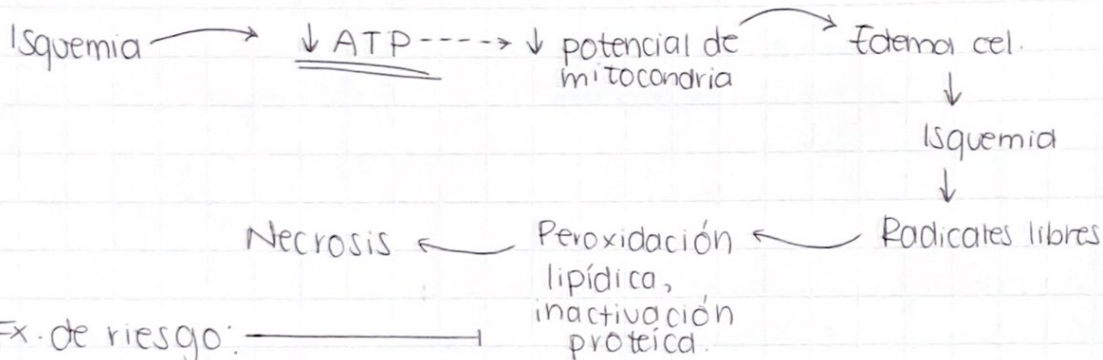 Isquemia → ↓ ATP ----> ↓ potencial de
mitocondria → Edema cel.
↓
Isquemia
↓
Radicales libres
← Peroxidación
lipídica,
inactivación
proteíca.
← Necrosis
Fx. de riesgo: